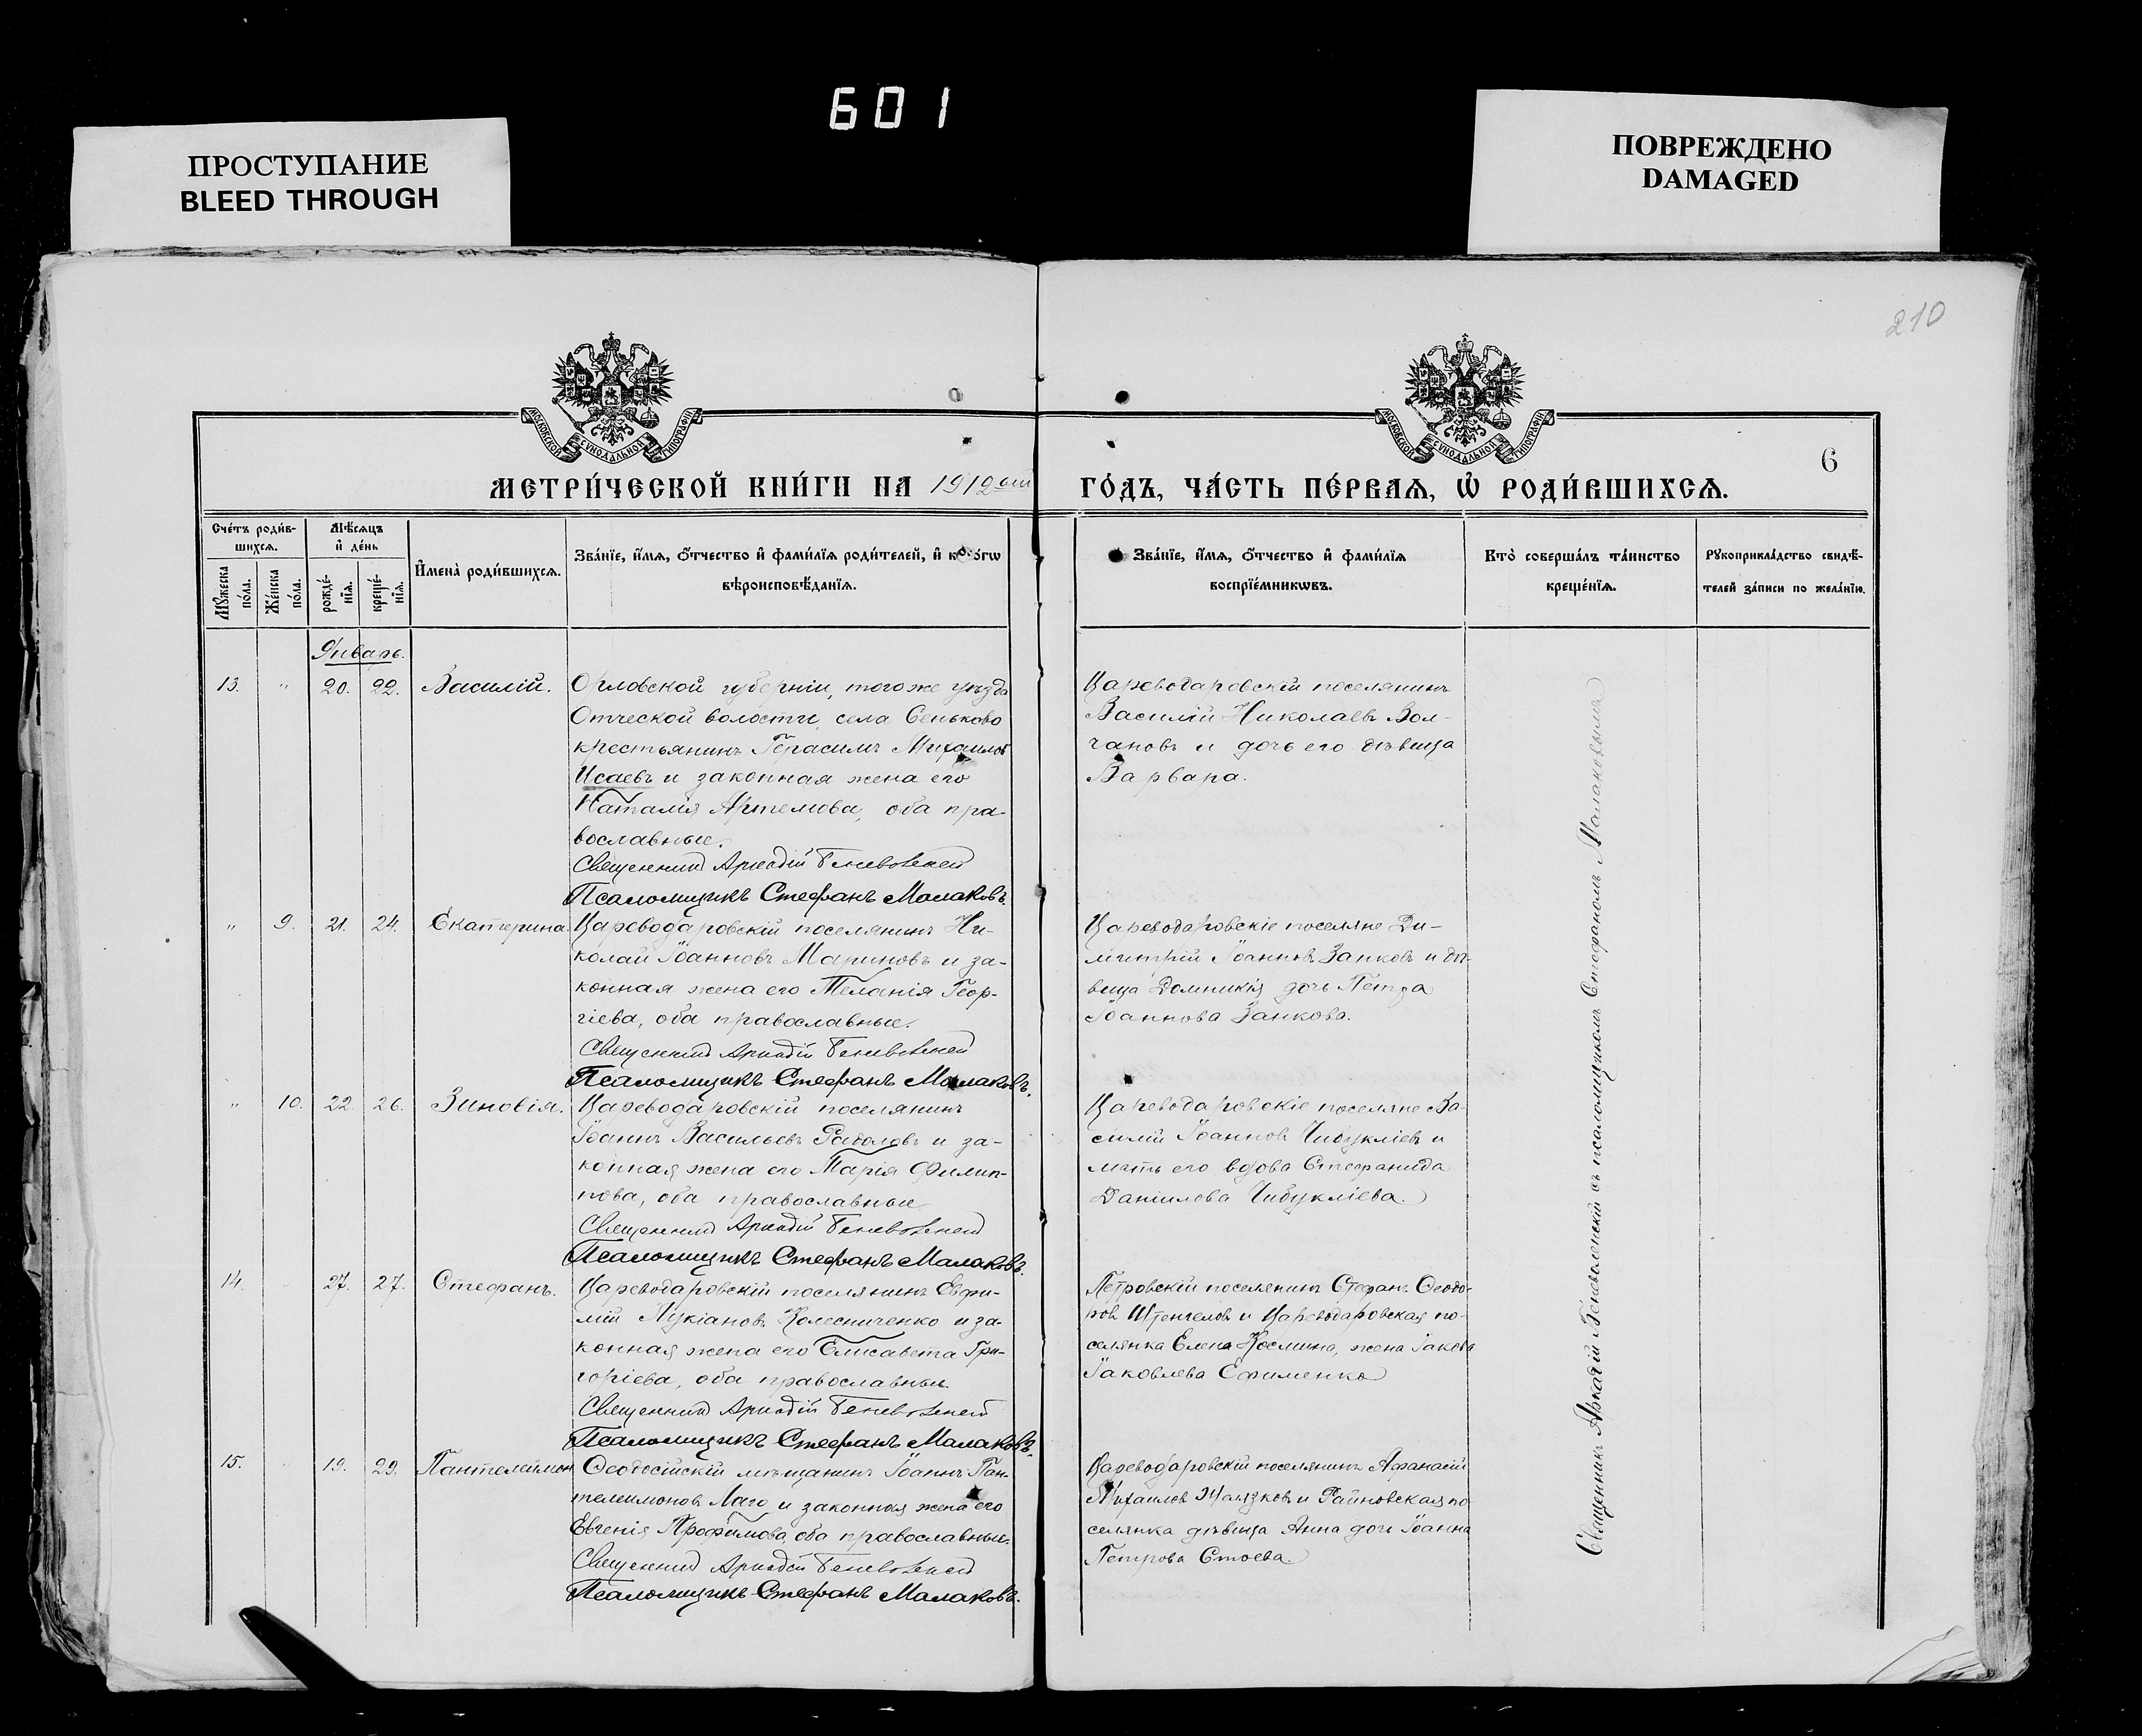 601
ПРОСТУПАНИЕ
BLEED THROUGH
ПОВРЕЖДЕНО
DAMAGED
210
МОСКОВСКОЙ СѴНОДАЛЬНОЙ ТИПОГРАФІИ
МОСКОВСКОЙ СѴНОДАЛЬНОЙ ТИПОГРАФІИ
6
МЕТРИ́ЧЕСКОЙ КНИ́ГИ НА 1912ый ГО́ДЪ, ЧА́СТЬ ПЕ́РВАѦ, Ѡ РОДИ́ВШИХСѦ.
Сче́тъ роди́в-
шихсѧ.
Мѣ́сѧцъ
и҆ де́нь
Мꙋ́жеска по́ла.
Же́нска по́ла.
рожде́-
нїѧ.
креще́-
нїѧ.
И҆мена̀ роди́вшихсѧ.
Зва́нїе, и҆́мѧ, ѻ҆́тчество и҆ фами́лїѧ роди́телей, и҆ ко́гѡ
вѣроисповѣ́данїѧ.
Зва́нїе, и҆́мѧ, ѻ҆́тчество и҆ фами́лїѧ
воспрїе́мникѡвъ.
Кто̀ соверша́лъ та́инство
креще́нїѧ.
Рꙋкоприкла́дство свидѣ́-
телей за́писи по жела́нїю.
Январь.
13. " 20. 22. Василій.
Орловской губерніи, того же уѣзда
волости, села Сеньково
крестьянинъ Герасимъ Михаиловъ
Исаевъ и законная жена его
Наталія Артемова, оба пра-
вославные.
Священникъ Аркадій Беневоленскій
Псаломщикъ Стефанъ Малаковъ.
Цареводаровскій поселянинъ
Василій Николаевъ Вол-
чановъ и дочь его дѣвица
Варвара.
" 9. 21. 24. Екатерина.
Цареводаровскій поселянинъ Ни-
колай Іоанновъ Мариновъ и за-
конная жена его Меланія Геор-
гіева, оба православные.
Священникъ Аркадій Беневоленскій
Псаломщикъ Стефанъ Малаковъ.
Цареводаровскіе поселяне Ди-
митрій Іоанновъ Занковъ и дѣ-
вица Домникія дочь Петра
Іоаннова Занкова.
" 10. 22. 26. Зиновія.
Цареводаровскій поселянинъ
Іоаннъ Васильевъ Радоловъ и за-
конная жена его Марія Филип-
пова, оба православные.
Священникъ Аркадій Беневоленскій
Псаломщикъ Стефанъ Малаковъ.
Цареводаровскіе поселяне Ва-
силій Іоанновъ Чибукліевъ и
мать его вдова Стефанида
Даніилова Чибукліева.
14. " 27. 27. Стефанъ.
Цареводаровскій поселянинъ Евфи-
мій Лукіановъ Колесниченко и за-
конная жена его Елисавета Гри-
горіева, оба православные.
Священникъ Аркадій Беневоленскій
Псаломщикъ Стефанъ Малаковъ.
Петровскій поселянинъ Стефанъ Ѳеодо-
ровъ Штенгеловъ и Цареводаровская по-
селянка Елена Космина, жена Іакова
Іаковлева Ефименко
15. " 19. 29. Пантелеймон
Ѳеодосійскій мѣщанинъ Іоаннъ Пан-
телеимоновъ Лаго и законная жена его
Евгенія Трофимова, оба православные.
Священникъ Аркадій Беневоленскій
Псаломщикъ Стефанъ Малаковъ.
Цареводаровскій поселянинъ Афанасій
Михаиловъ и Райновская по-
селянка дѣвица Анна дочь Іоанна
Петрова Стоева.
Священникъ Аркадій Беневоленскій съ псаломщикомъ Стефаномъ Малаковымъ